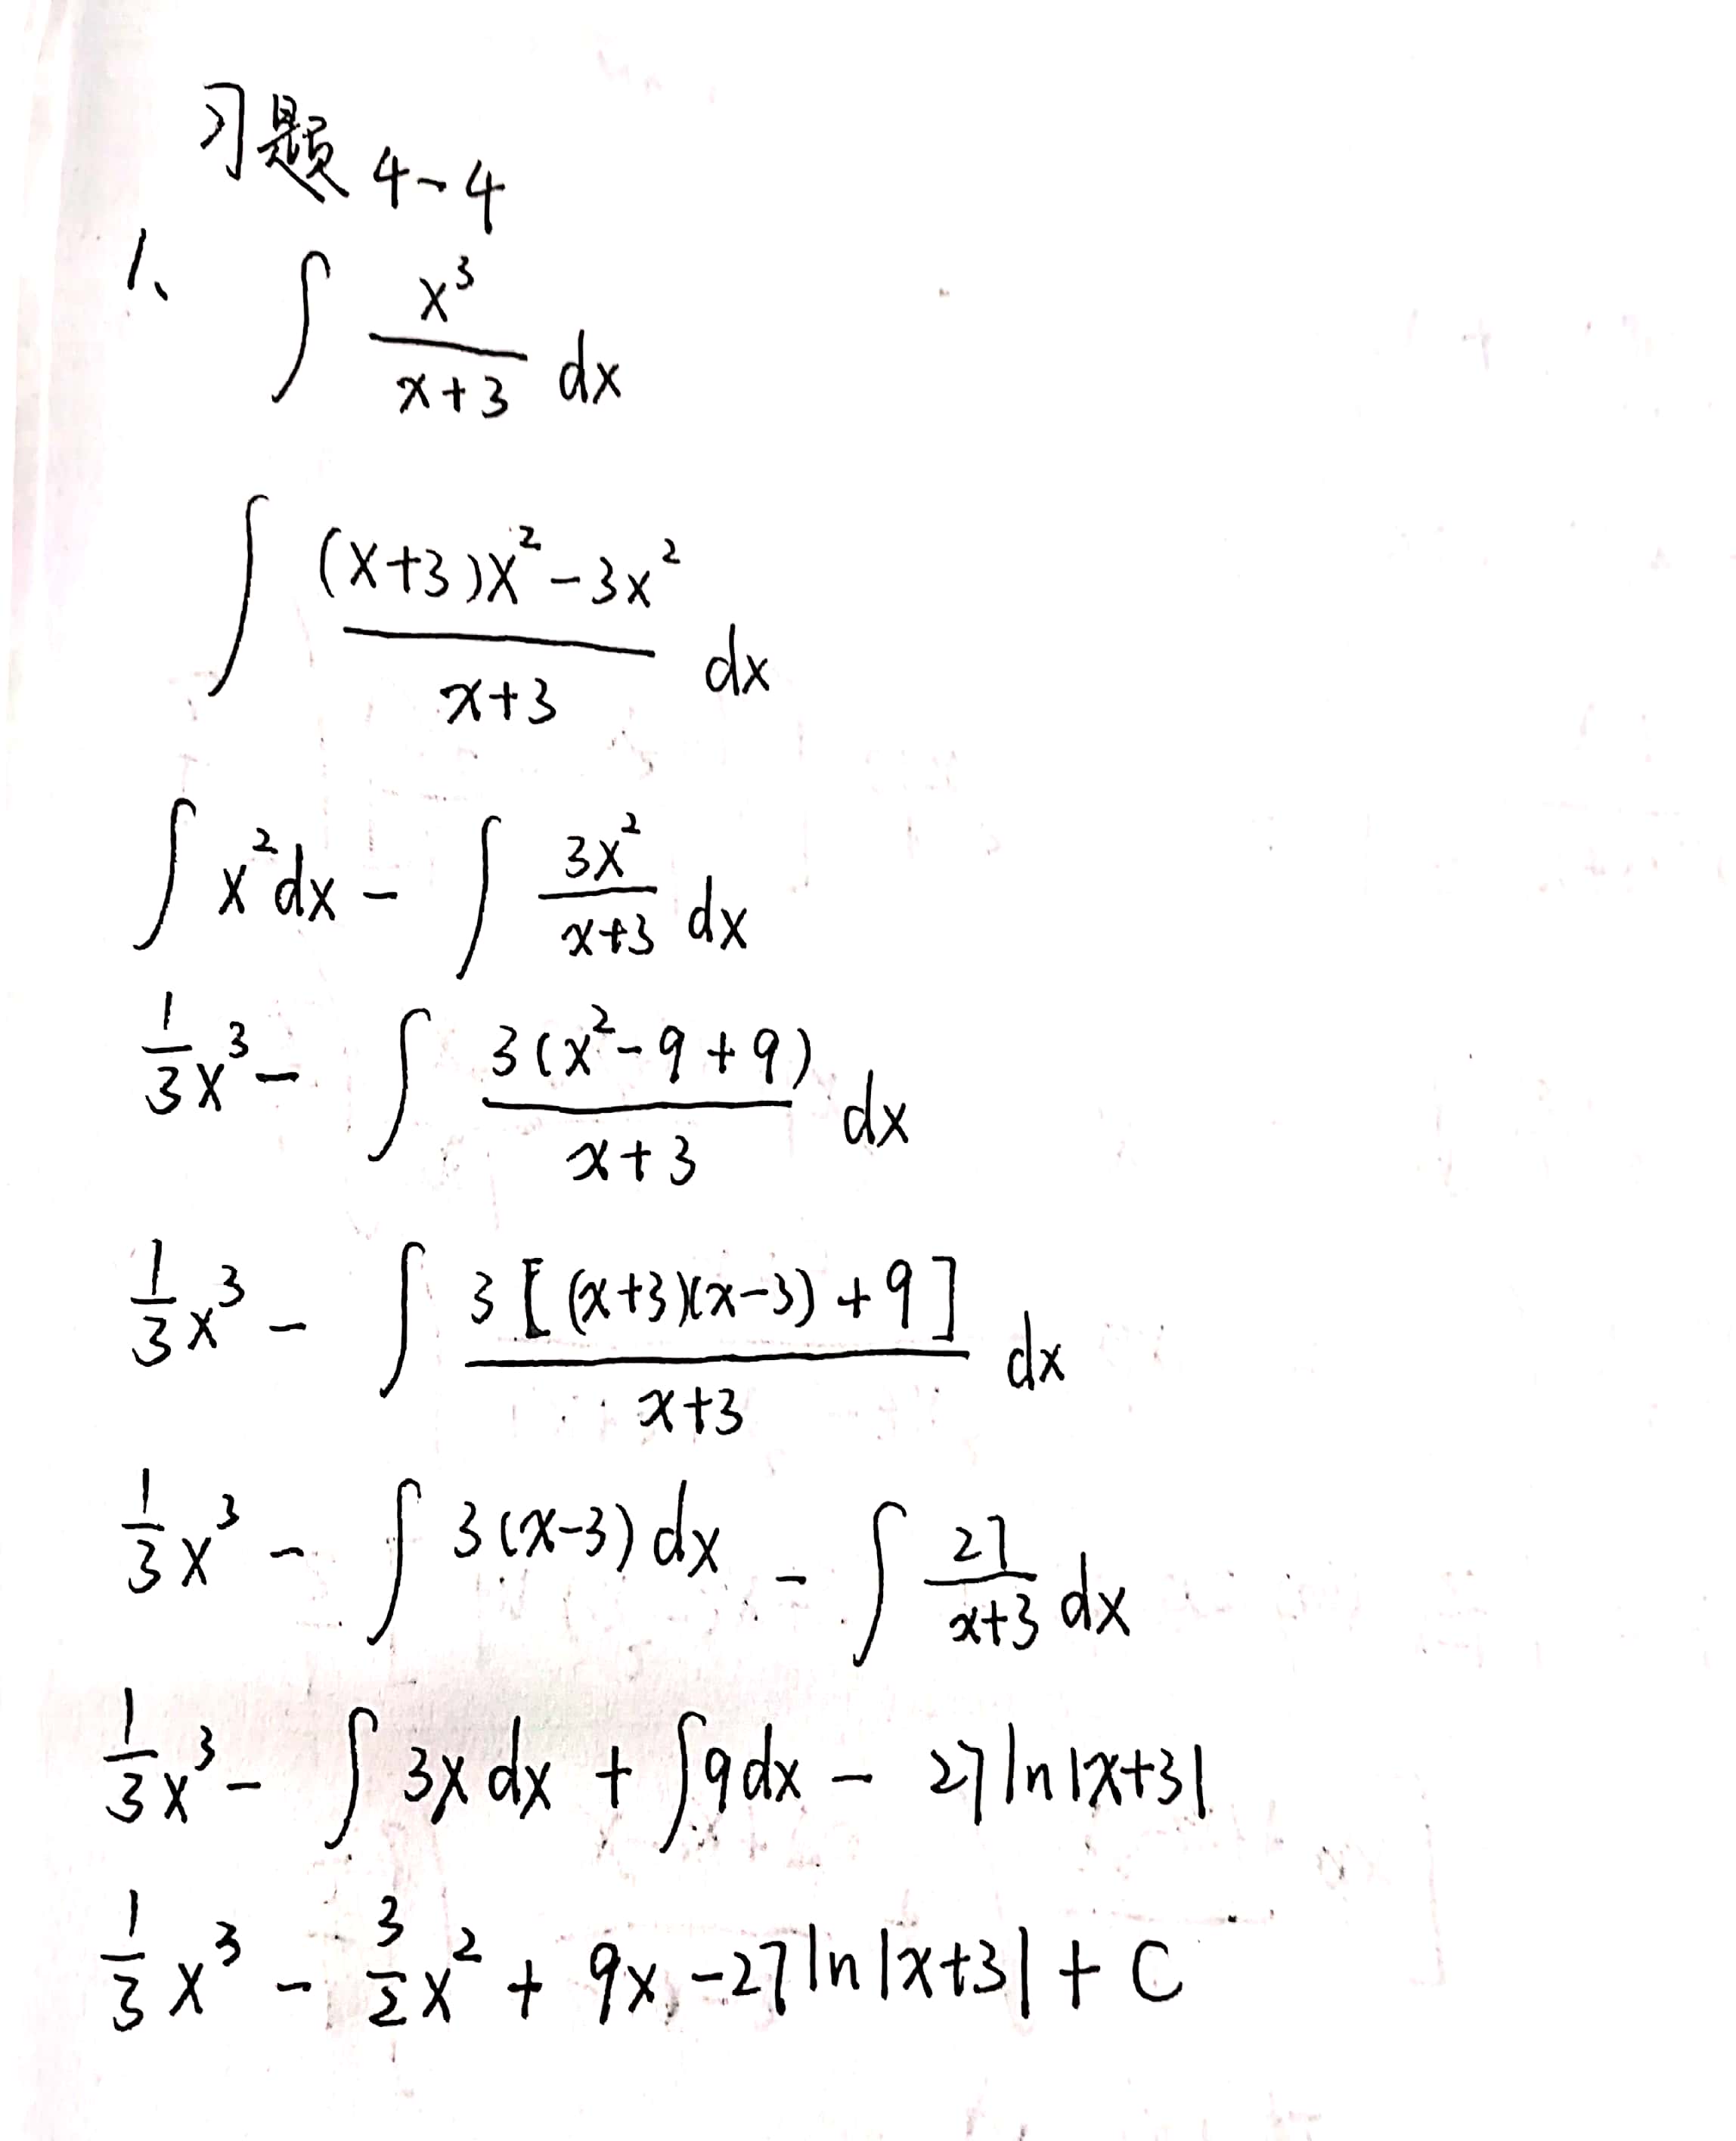 习题 4-4
1、 ∫ x³/(x+3) dx
∫ ((x+3)x²-3x²)/(x+3) dx
∫ x²dx - ∫ 3x²/(x+3) dx
1/3 x³ - ∫ 3(x²-9+9)/(x+3) dx
1/3 x³ - ∫ 3[(x+3)(x-3)+9]/(x+3) dx
1/3 x³ - ∫ 3(x-3)dx - ∫ 27/(x+3) dx
1/3 x³ - ∫ 3x dx + ∫9dx - 27ln|x+3|
1/3 x³ - 3/2 x² + 9x - 27ln|x+3| + C